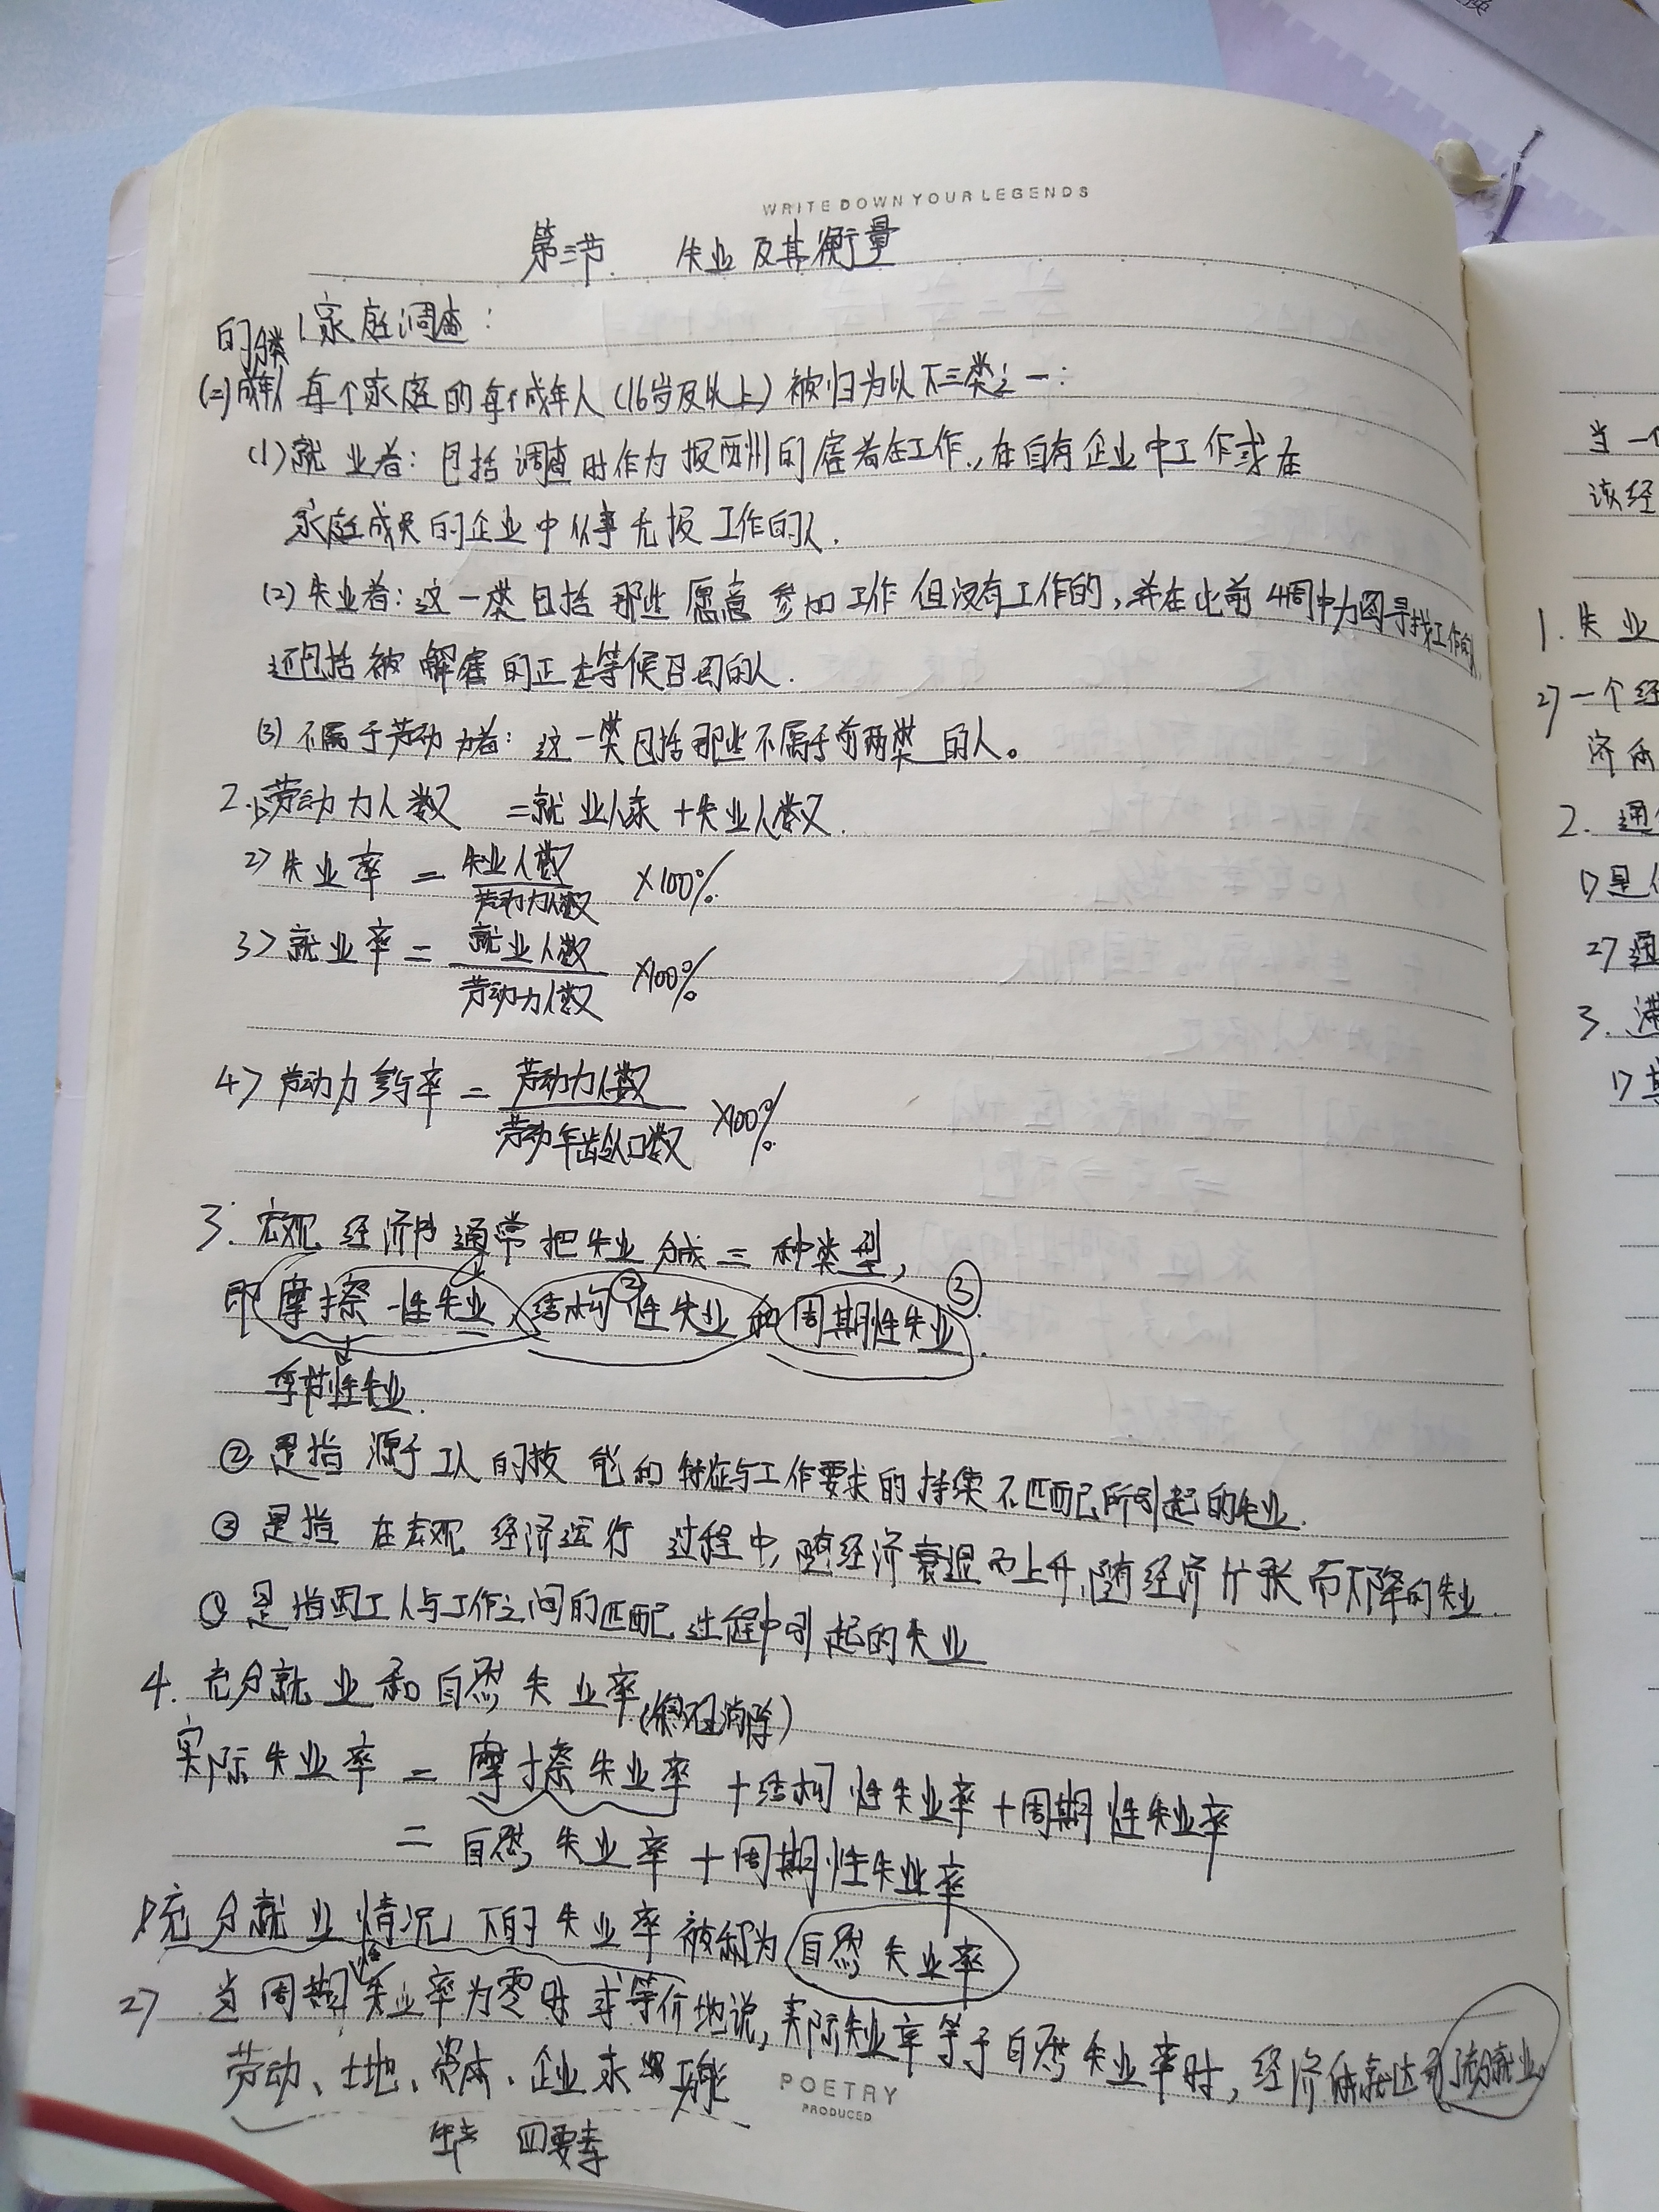 WRITE DOWN YOUR LEGENDS
第三节. 失业及其衡量
1.家庭调查:
的分类
(二)成年人 每个家庭的每个成年人(16岁及以上)被归为以下三类之一:
(1)就业者: 包括调查时作为报酬的雇者在工作.,在自有企业中工作或在
家庭成员的企业中从事无报工作的人.
(2)失业者:这一类包括那些愿意参加工作但没有工作的,并在此前4周中力图寻找工作的人
还包括被解雇的正在等候召回的人.
(3)不属于劳动力者:这一类包括那些不属于前两类的人。
2.1>劳动力人数 =就业人数+失业人数.
2>失业率 = 失业人数/劳动力人数 ×100%
3>就业率= 就业人数/劳动力人数 ×100%
4>劳动力参与率= 劳动力人数/劳动年龄人口数 ×100%
3. 宏观经济中通常把失业分成三种类型,
即摩擦性失业、结构②性失业和周期性失业③.
季节性失业.
②是指源于工人的技能和特征与工作要求的持续不匹配所引起的失业.
③是指在宏观经济运行过程中,随经济衰退而上升,随经济扩张而下降的失业.
①是指因工人与工作之间的匹配过程中引起的失业
4.充分就业和自然失业率.
实际失业率 = 摩擦失业率+结构性失业率+周期性失业率
= 自然失业率+周期性失业率
1>充分就业情况下的失业率被称为自然失业率
2> 当周期性失业率为零时或等价地说,实际失业率等于自然失业率时,经济体就达到充分就业.
劳动、土地、资本、企业家才能
生产四要素
POETRY
PRODUCED
当一
该经
1.失业
2>一个经
济
2.通
1>是
2>通
3.滞
1>